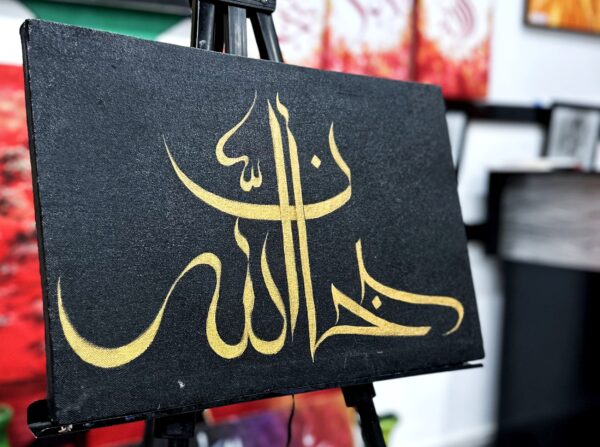 سبحان اللّه